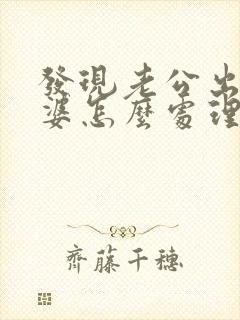 發現老公出
婆怎麼處理
齊藤千穗